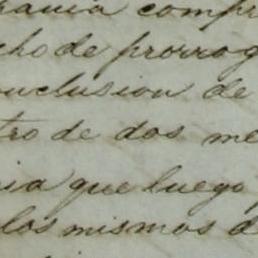 pania compr
cho de prorrog
onclusion de
tro de dos me
nia que luego
los mismos d